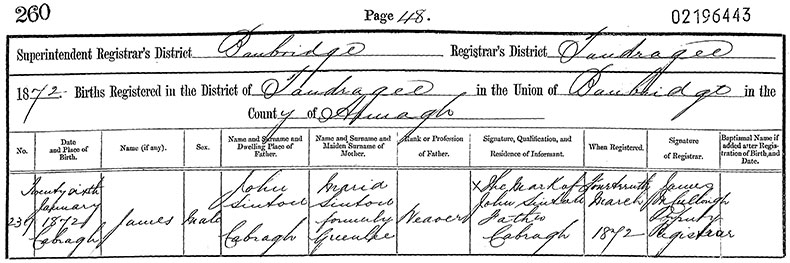 260 Page 48. 02196443
Superintendent Registrar's District Banbridge Registrar's District Tandragee
1872 Births Registered in the District of Tandragee in the Union of Banbridge in the
County of Armagh
No. Date and Place of Birth. Name (if any). Sex. Name and Surname and Dwelling Place of Father. Name and Surname and Maiden Surname of Mother. Rank or Profession of Father. Signature, Qualification, and Residence of Informant. When Registered. Signature of Registrar. Baptismal Name if added after Registration of Birth, and Date.
Twenty sixth January 1872 Cabragh James Male John Sintow Cabragh Sintow formerly Weaver X The Mark of John Father Cabragh March 1872 James Deputy Registrar